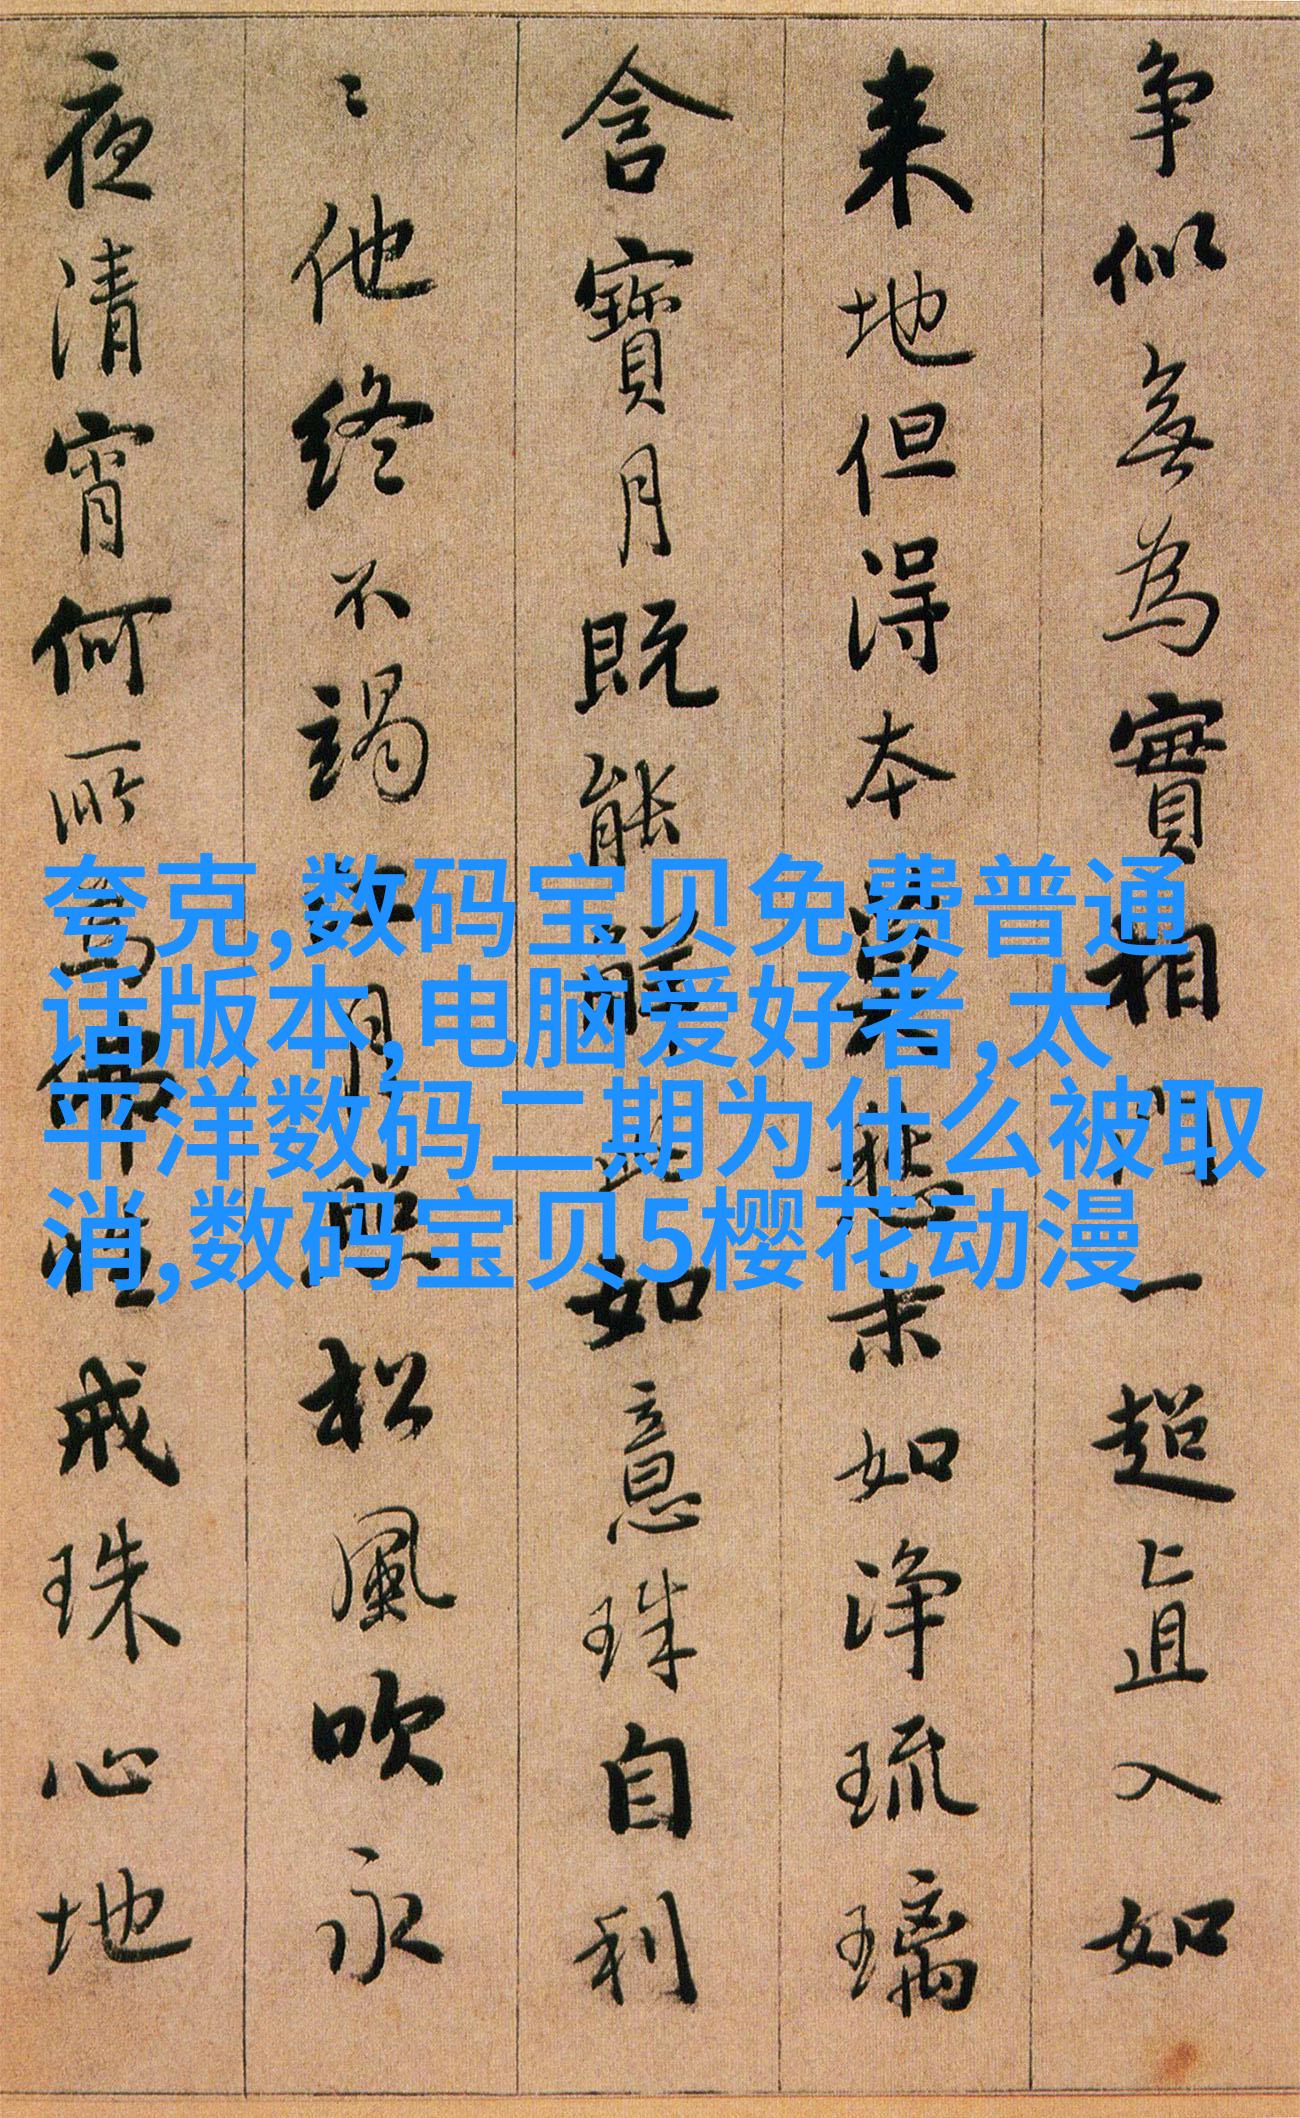 争似無為實相門一超直入如
来地但得本莫愁末如淨琉璃
含寶月既能解此如意珠自利
〻他終不竭江月照松風吹永
夜清宵何所為佛性戒珠心地
夸克,数码宝贝免费普通
话版本,电脑爱好者,太
平洋数码二期为什么被取
消,数码宝贝5樱花动漫